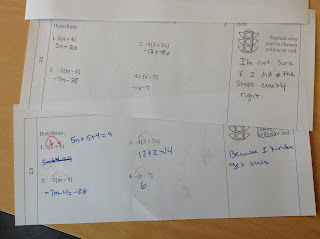 Distribute.
1. 5(n + 4)
5n + 20
2. -4(3 + 2x)
-12 + -8x
3. -7(m - 4)
-7m - 28
4. -(x - 7)
-x - 7
2.3
Explain why
you've chosen
yellow or red.
I'm not sure
if I did the
steps exactly
right
Distribute.
1. 5(n + 4)
5n + 5+4 = 9
2. -4(3 + 2x)
12 + 2 = 14
3. -7(m - 4)
-7m - 4 = -28
4. -(x - 7)
6
2.3
or red.
Because I kinda
get this